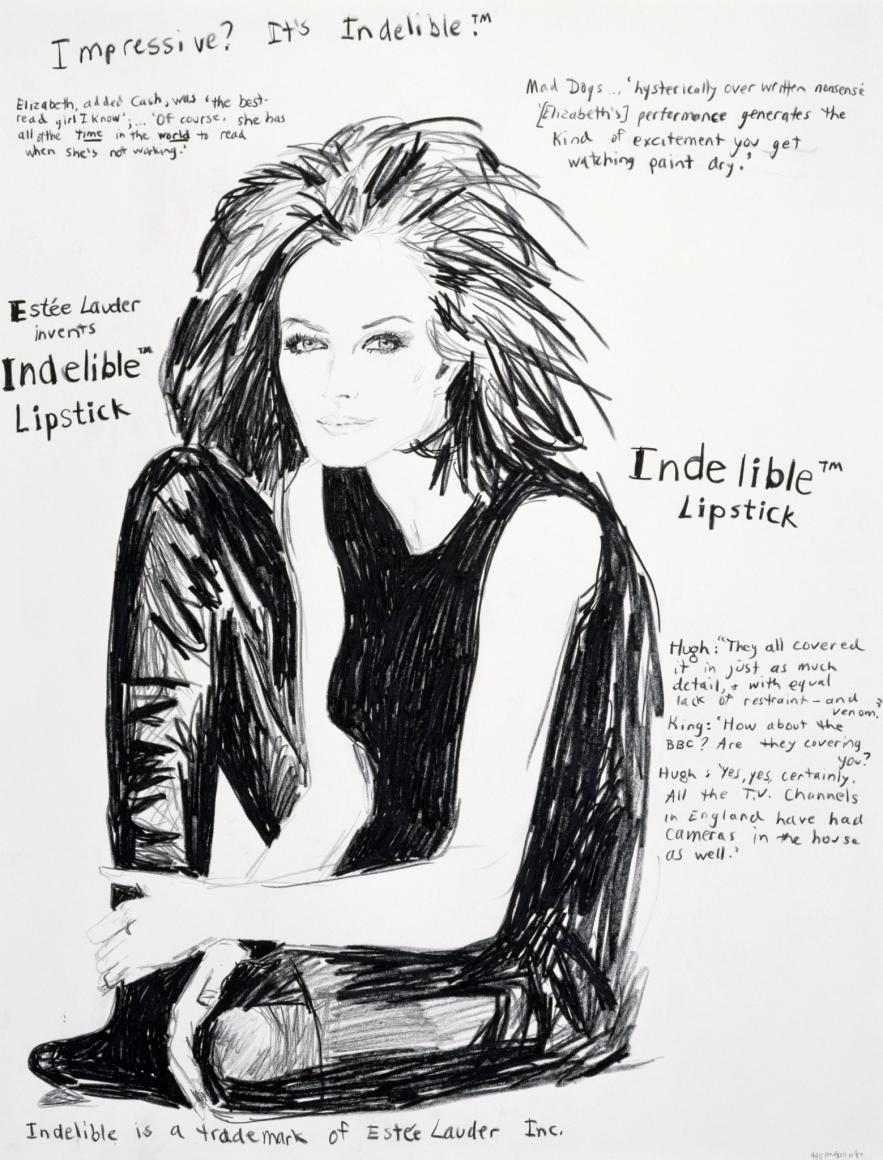 Impressive? It's Indelible.™
Elizabeth, added Cash, was 'the best-
read girl I know';... 'Of course, she has
all of the time in the world to read
when she's not working.'
Mad Dogs ... 'hysterically over written nonsense
'[Elizabeth's] performance generates the
kind of excitement you get
watching paint dry.'
Estée Lauder
invents
Indelible™
Lipstick
Indelible™
Lipstick
Hugh: "They all covered
it in just as much
detail, + with equal
lack of restraint – and
venom.'
King: 'How about the
BBC? Are they covering
you?
Hugh: 'Yes, yes, certainly.
All the T.V. Channels
in England have had
cameras in the house
as well.'
Indelible is a trademark of Estée Lauder Inc.